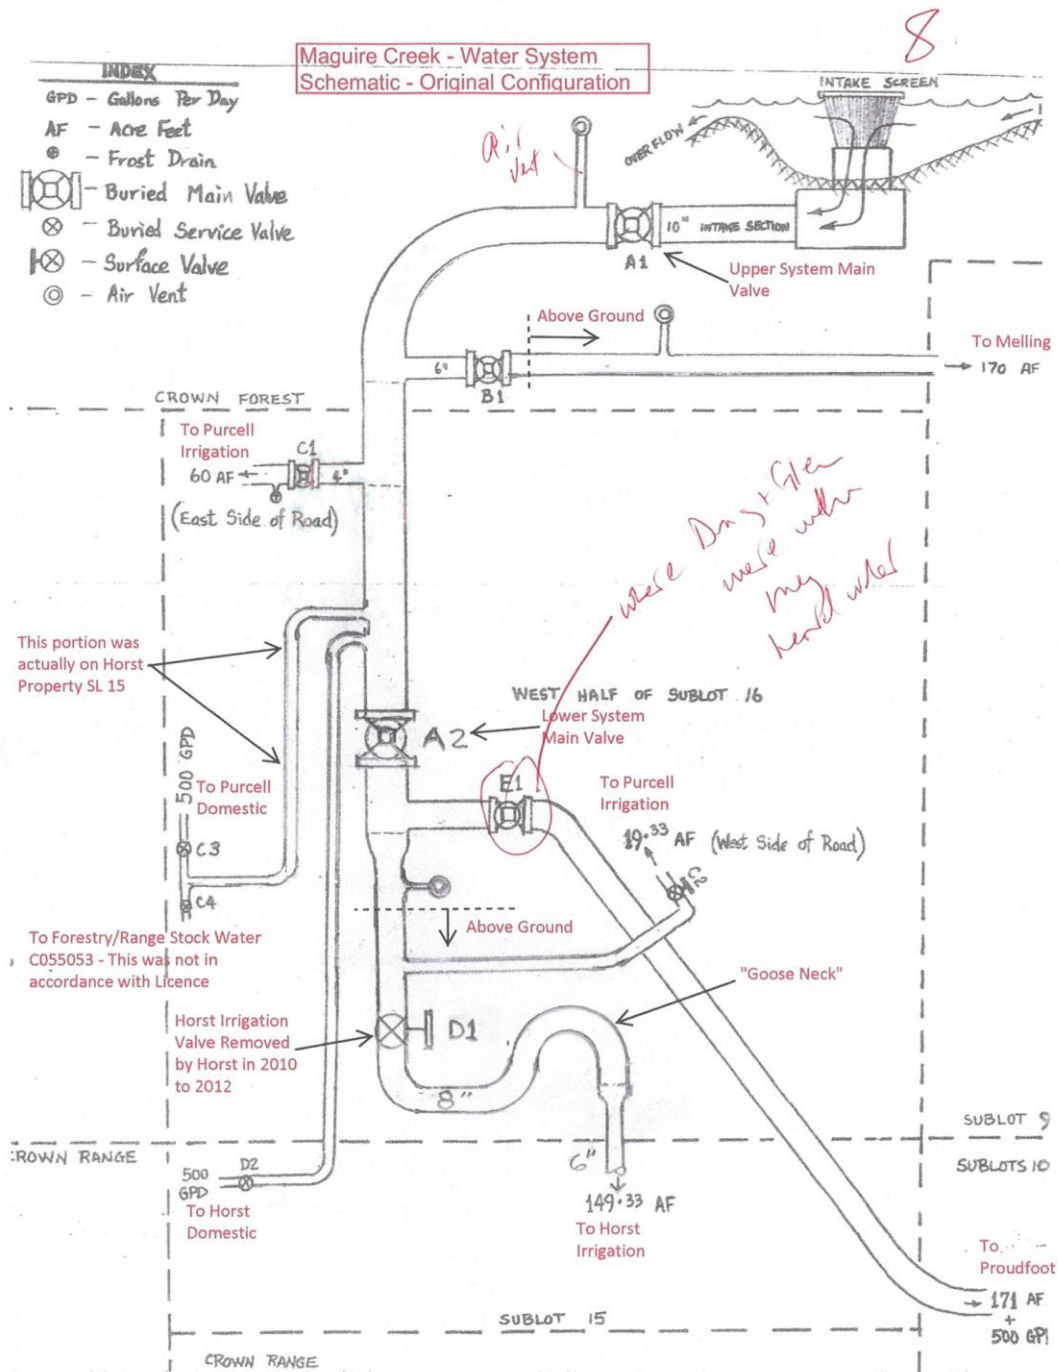 8
Maguire Creek - Water System
Schematic - Original Configuration
INDEX
GPD - Gallons Per Day
AF - Acre Feet
- Frost Drain
- Buried Main Valve
- Buried Service Valve
- Surface Valve
- Air Vent
INTAKE SCREEN
OVERFLOW
Air
Vent
10" INTAKE SECTION
A1
Upper System Main
Valve
Above Ground
To Melling
170 AF
6"
B1
CROWN FOREST
To Purcell
Irrigation
C1
60 AF
4"
(East Side of Road)
where Doug + Glen
were
This portion was
actually on Horst
Property SL 15
WEST HALF OF SUBLOT 16
A2
Lower System
Main Valve
500 GPD
To Purcell
Domestic
E1
To Purcell
Irrigation
19.33 AF (West Side of Road)
C3
C2
C4
Above Ground
To Forestry/Range Stock Water
C055053 - This was not in
accordance with Licence
"Goose Neck"
Horst Irrigation
Valve Removed
by Horst in 2010
to 2012
D1
8"
SUBLOT 9
CROWN RANGE
SUBLOTS 10
500
GPD
D2
6"
To Horst
Domestic
149.33 AF
To Horst
Irrigation
To
Proudfoot
171 AF
+
500 GP
SUBLOT 15
CROWN RANGE